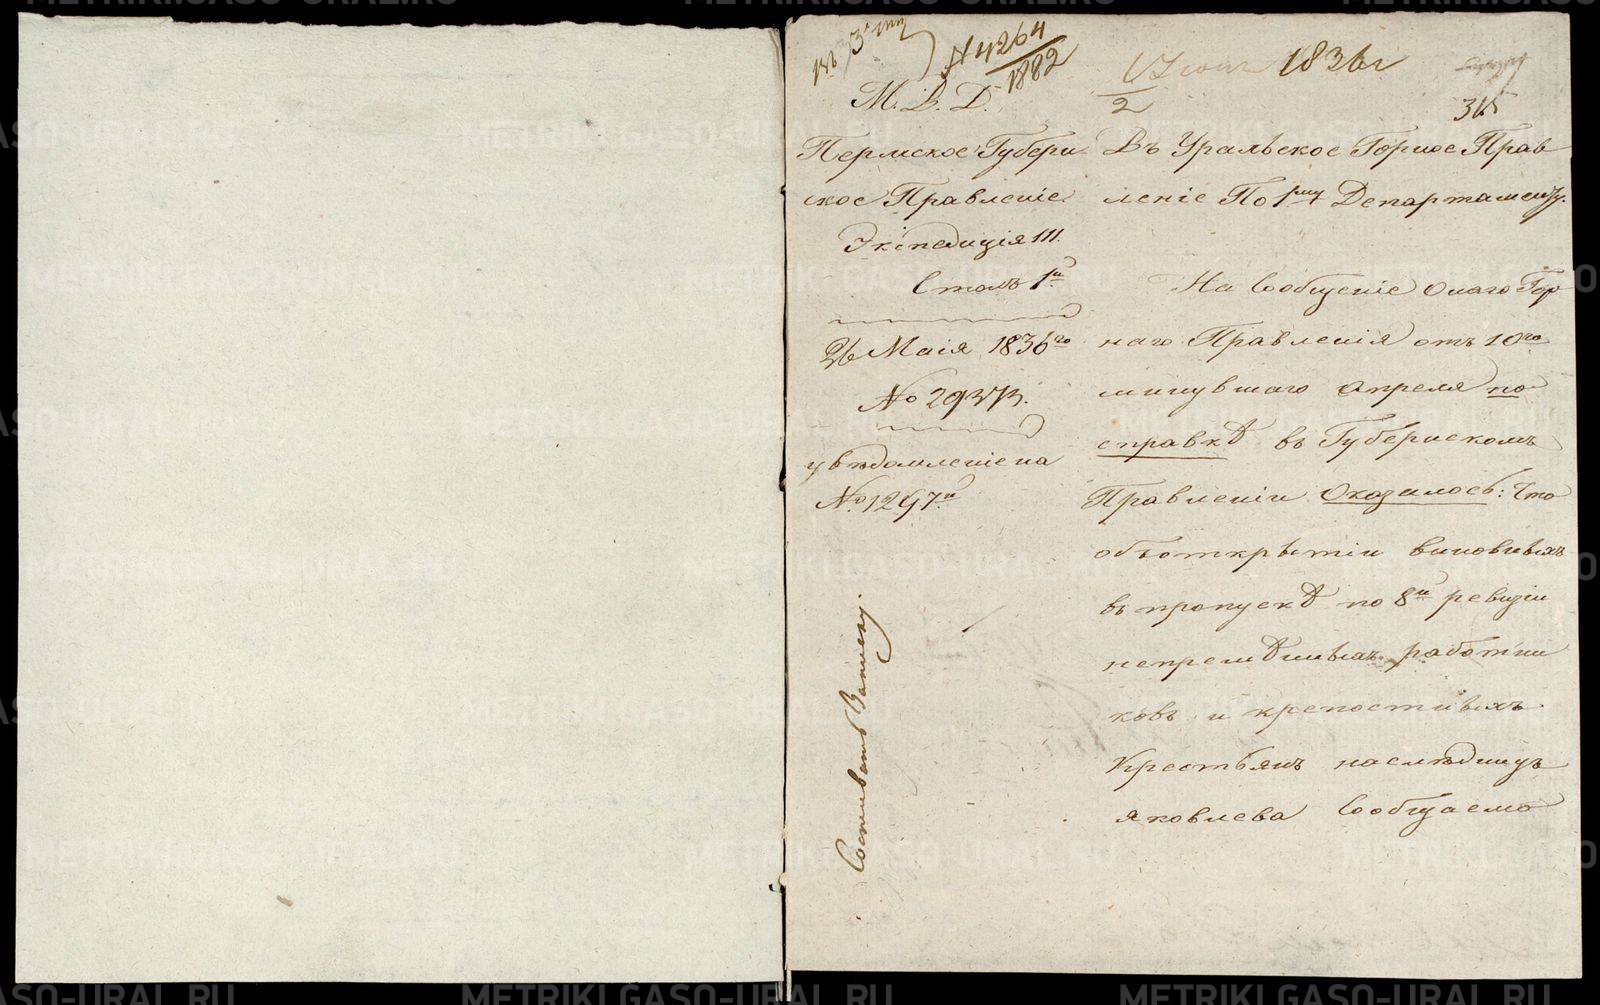 № 4264
1882
17 Юня 1836 г
2
315
М. В. Д.
Пермское Губерн
ское Правленіе
Экспедиція III.
Столъ 1й
26 Маія 1836го
№ 29373.
увѣдомленіе на
№ 1297й
Составить Записку.
Въ Уральское Горное Прав
леніе По 1му Департаменту.
На Сообщеніе Онаго Гор
наго Правленія отъ 10го
минувшаго Апреля по
справкѣ въ Губернскомъ
Правленіи Оказалось: Что
объ открытіи виновныхъ
въ пропускѣ по 8й ревизіи
непремѣнныхъ работни
ковъ и крепостныхъ
Крестьянъ наслѣдницъ
Яковлева Сообщаемо